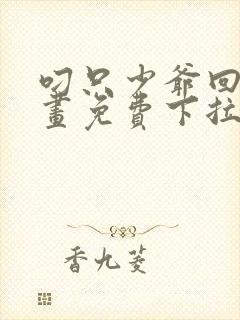 叼只少爷回
畫免費下拉
香九菱